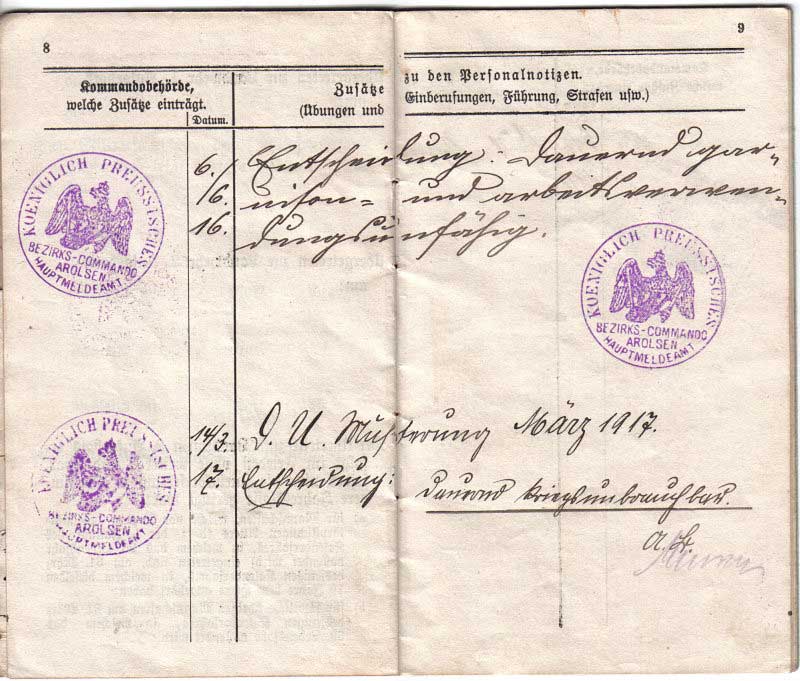 8
9
Kommandobehörde,
welche Zusätze einträgt.
Datum.
Zusätze
(Übungen und
zu den Personalnotizen.
Einberufungen, Führung, Strafen usw.)
KOENIGLICH PREUSSISCHES
BEZIRKS-COMMANDO
AROLSEN
HAUPTMELDEAMT
6./
16.
16.
Entscheidung: Dauernd gar-
nison- und arbeitsverwen-
dungsunfähig.
KOENIGLICH PREUSSISCHES
BEZIRKS-COMMANDO
AROLSEN
HAUPTMELDEAMT
KOENIGLICH PREUSSISCHES
BEZIRKS-COMMANDO
AROLSEN
HAUPTMELDEAMT
14/3.
17.
D. U. Musterung März 1917.
Entscheidung: dauernd kriegsunbrauchbar.